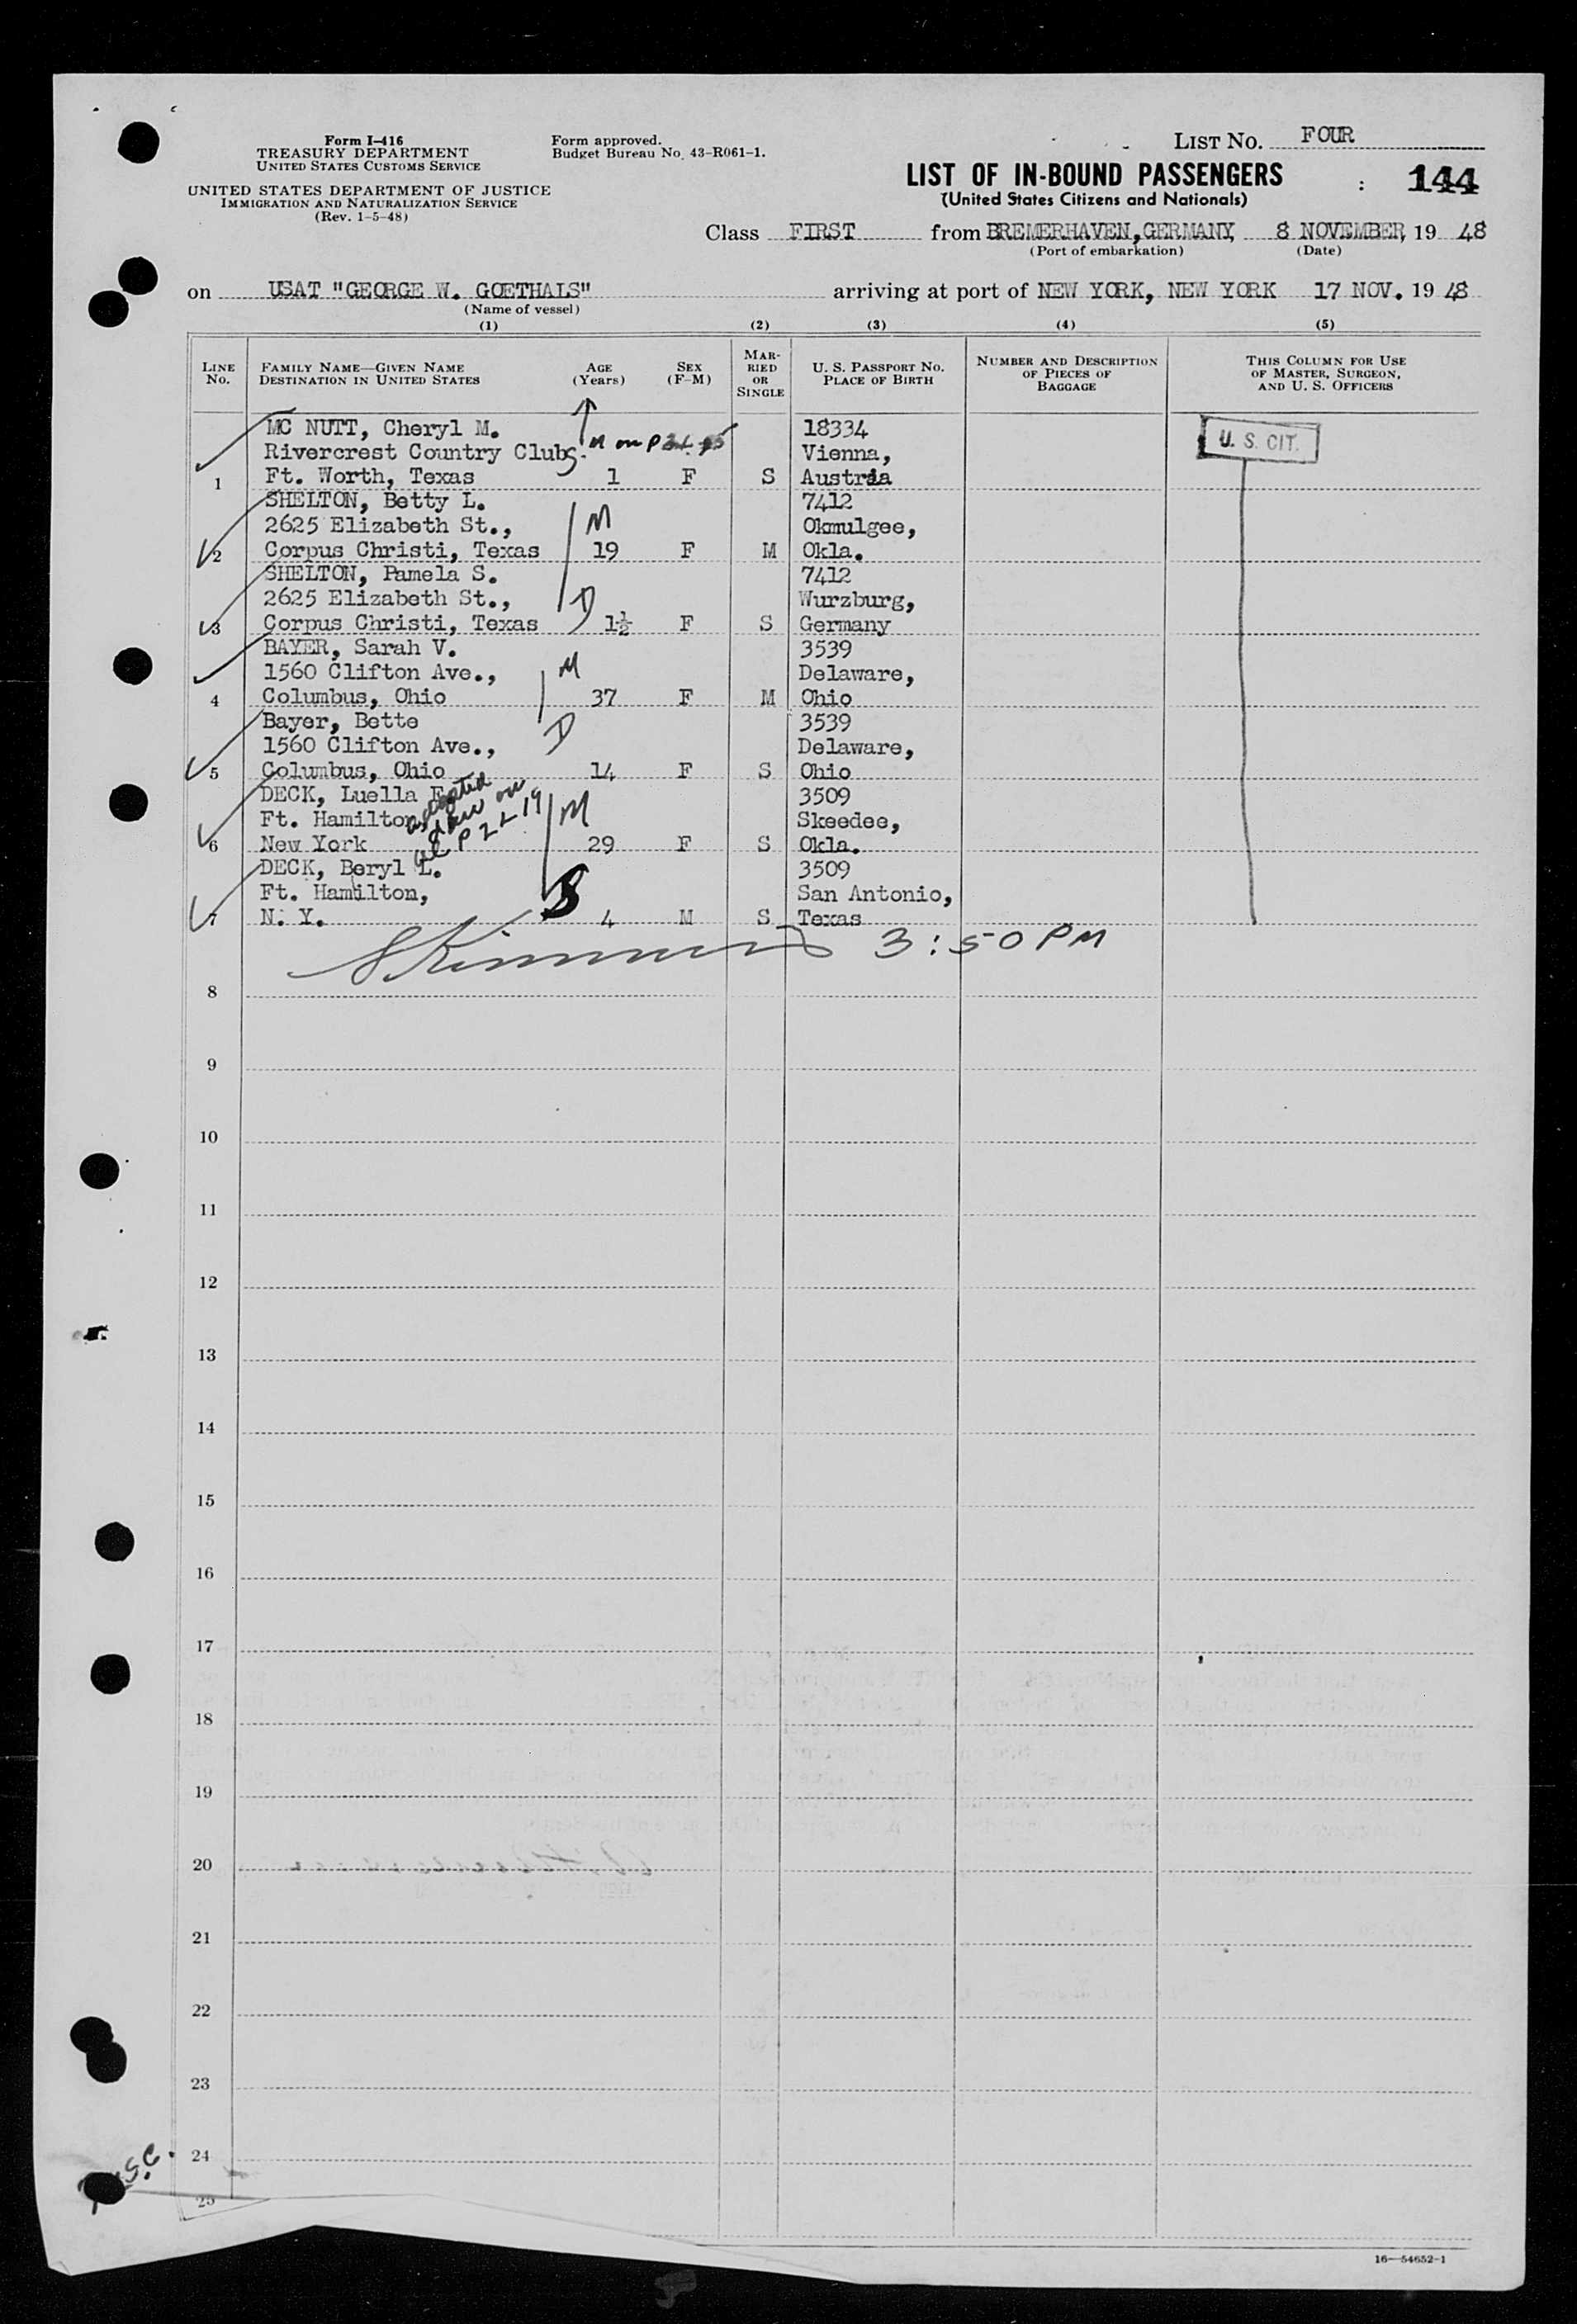 Form I-416
TREASURY DEPARTMENT
UNITED STATES CUSTOMS SERVICE
UNITED STATES DEPARTMENT OF JUSTICE
IMMIGRATION AND NATURALIZATION SERVICE
(Rev. 1-5-48)
Form approved.
Budget Bureau No. 43-R061-1.
LIST No. FOUR
LIST OF IN-BOUND PASSENGERS : 144
(United States Citizens and Nationals)
Class FIRST from BREMERHAVEN, GERMANY, 8 NOVEMBER, 19 48
(Port of embarkation) (Date)
on USAT "GEORGE W. GOETHALS" arriving at port of NEW YORK, NEW YORK 17 NOV. 19 48
(Name of vessel)
(1) (2) (3) (4) (5)
LINE No.
FAMILY NAME—GIVEN NAME
DESTINATION IN UNITED STATES
AGE
(Years)
SEX
(F-M)
MARRIED OR SINGLE
U. S. PASSPORT NO.
PLACE OF BIRTH
NUMBER AND DESCRIPTION
OF PIECES OF
BAGGAGE
THIS COLUMN FOR USE
OF MASTER, SURGEON,
AND U. S. OFFICERS
MC NUTT, Cheryl M. 18334 U. S. CIT.
Rivercrest Country Club M on P Vienna,
1 Ft. Worth, Texas 1 F S Austria
SHELTON, Betty L. 7412
2625 Elizabeth St., M Okmulgee,
2 Corpus Christi, Texas 19 F M Okla.
SHELTON, Pamela S. 7412
2625 Elizabeth St., D Wurzburg,
3 Corpus Christi, Texas 1½ F S Germany
BAYER, Sarah V. 3539
1560 Clifton Ave., M Delaware,
4 Columbus, Ohio 37 F M Ohio
Bayer, Bette D 3539
1560 Clifton Ave., Delaware,
5 Columbus, Ohio 14 F S Ohio
DECK, Luella adopted 3509
Ft. Hamilton, dau on M Skeedee,
6 New York P 2 L 19 29 F S Okla.
DECK, Beryl L. 3509
Ft. Hamilton, S San Antonio,
7 N. Y. 4 M S Texas
3:50 PM
8
9
10
11
12
13
14
15
16
17
18
19
20
21
22
23
24
25
16—54652-1